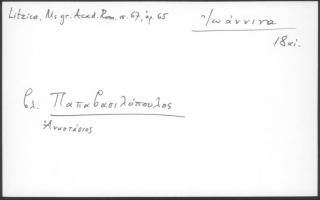 Litzica, Ms gr. Acad. Rom. σ. 67, ἀρ. 65
Ἰωάννινα
18 αἰ.
βλ. Παπαβασιλόπουλος
Ἀναστάσιος